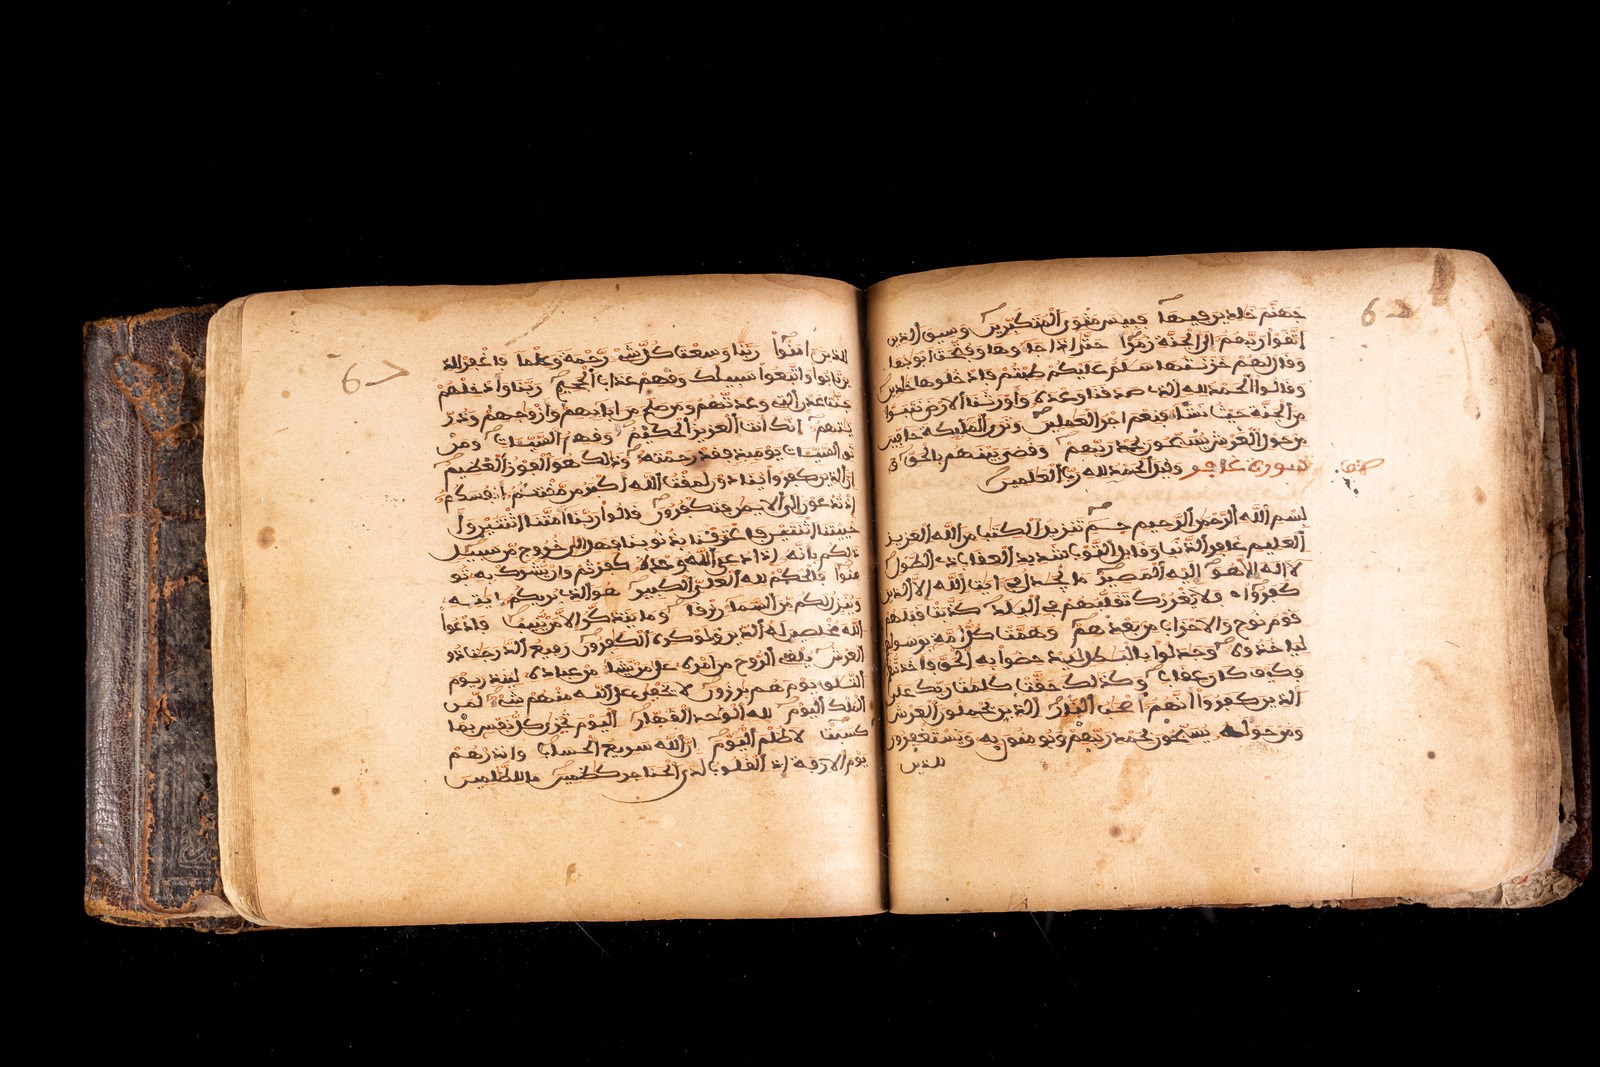 جهنم خلدين فيها فبيس مثوى المتكبرين وسيق الذين
اتقوا ربهم الى الجنة زمرا حتى اذا جاءوها وفتحت ابوبها
وقال لهم خزنتها سلم عليكم طبتم فادخلوها خلدين
وقالوا الحمد لله الذي صدقنا وعده واورثنا الارض نتبوا
من الجنة حيث نشاء فنعم اجر العملين وترى المليكة حافين
من حول العرش يسبحون بحمد ربهم وقضي بينهم بالحق
وقيل الحمد لله رب العلمين سورة غافر
بسم الله الرحمن الرحيم حم تنزيل الكتاب من الله العزيز
العليم غافر الذنب وقابل التوب شديد العقاب ذي الطول
لا اله الا هو اليه المصير ما يجدل في ايت الله الا الذين
كفروا فلا يغررك تقلبهم في البلد كذبت قبلهم
قوم نوح والاحزاب من بعدهم وهمت كل امة برسولهم
لياخذوه وجدلوا بالبطل ليدحضوا به الحق فاخذتهم
فكيف كان عقاب وكذلك حقت كلمت ربك على
الذين كفروا انهم اصحب النار الذين يحملون العرش
ومن حوله يسبحون بحمد ربهم ويومنون به ويستغفرون
للذين
للذين امنوا ربنا وسعت كل شيء رحمة وعلما فاغفر للذ
ين تابوا واتبعوا سبيلك وقهم عذاب الجحيم ربنا وادخلهم
جنت عدن التي وعدتهم ومن صلح من ابايهم وازوجهم وذر
يتهم انك انت العزيز الحكيم وقهم السيات ومن
تق السيات يوميذ فقد رحمته وذلك هو الفوز العظيم
ان الذين كفروا ينادون لمقت الله اكبر من مقتكم انفسكم
اذ تدعون الى الايمن فتكفرون قالوا ربنا امتنا اثنتين وا
حييتنا اثنتين فاعترفنا بذنوبنا فهل الى خروج من سبيل
ذلكم بانه اذا دعي الله وحده كفرتم وان يشرك به تو
منوا فالحكم لله العلي الكبير هو الذي يريكم ايته
وينزل لكم من السماء رزقا وما يتذكر الا من ينيب فادعوا
الله مخلصين له الدين ولو كره الكفرون رفيع الدرجت ذو
العرش يلقي الروح من امره على من يشاء من عباده لينذر يوم
التلق يوم هم برزون لا يخفى على الله منهم شيء لمن
الملك اليوم لله الوحد القهار اليوم تجزى كل نفس بما
كسبت لا ظلم اليوم ان الله سريع الحساب وانذرهم
يوم الازفة اذ القلوب لدى الحناجر كظمين ما للظلمين